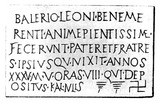 BALERIOLEONIBENEME
RENTIANIMEPIENTISSIM
FECERUNTPATERETFRATRE
SIPSIUSQUIVIXITANNOS
XXXM V ORAS VIII QUI DEP
OSITUS KALNLIS